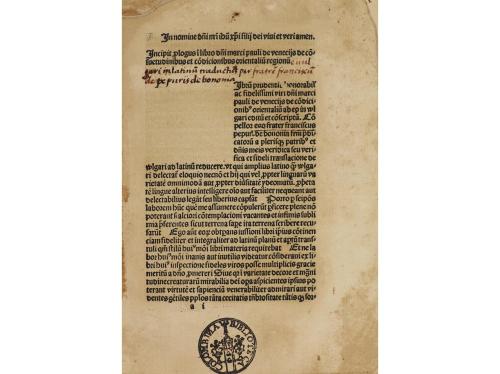 In nomine dñi nr̃i ihũ xp̃i filij dei viui et veri amen.
Incipit plogus ĩ libro dñi marci pauli de venecijs de cõ
suetudinibus et cõdicionibus orientaliũ regionũ
de pepuris de bononia
prudentis honorabil
ac fidelissimi viri dñi marci
pauli de venecijs de cõdici
onibꝰ orientaliũ ab eo in wl
gari editũ et cõscriptũ. Cõ
pellor ego frater franciscus
pepur. de bononia frm̃ p̃di
catorũ a plerisqꝫ patribꝰ et
dñis meis veridica seu veri
fica et fideli translacione de
wlgari ad latinũ reducere. vt qui amplius latino qͫ wl
gari delectant̃ eloquio necnõ et hij qui vel ppter linguarũ va
rietatẽ omnimodã aut ppter diuersitatẽ ydeomatũ. pp̃rieta
tẽ lingue alterius intelligere oĩno aut faciliter nequeant aut
delectabilius legãt seu liberius capiãt Porro p seipos
laborem hũc quẽ me assumere cõpulerũt pficere plene nõ
poterant altiori cõtemplacioni vacantes et infimis subli
mia p̃ferentes sicut terrena sape ita terrena scribere recu
sarũt Ego aut eoꝝ obtẽperans iussioni libri ipiꝰ cõtinen
ciam fideliter et integraliter ad latinũ planũ et aptũ trans
tuli qm̃ stilũ huiꝰmõi libri materia requirebat Et ne la
bor huiꝰmõi inanis aut inutilis videatur cõsideraui ex li
bri huiꝰ inspectione fideles viros posse multiplicis gracie
meritũ a dño pmereri Siue qꝫ ĩ varietate decore et mãgni
tudine creaturarũ mirabilia dei opa aspicientes
poterant virtutẽ et sapienciã venerabiliter admirari aut vi
dentes gẽtiles pplos tãta cecitatis tenebrositate tãtisqꝫ sor
a i
BIBLIOTECA COLOMBINA